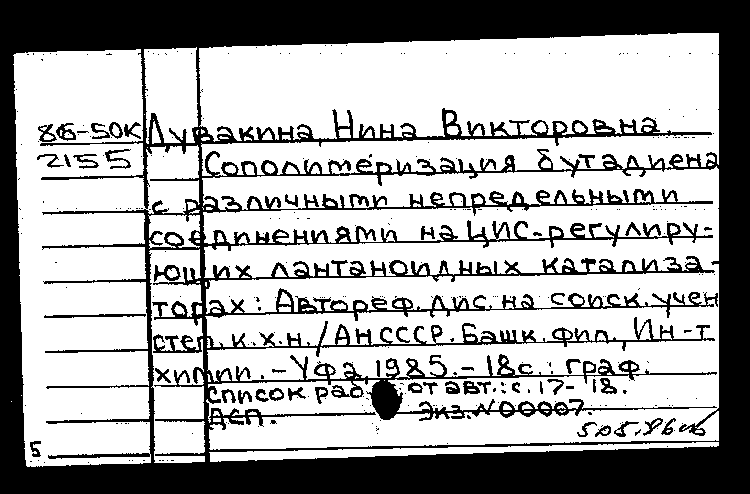 86-50К Дувакина, Нина Викторовна.
2155 Сополимеризация бутадиена
с различными непредельными
соединениями на ЦИС-регулиру-
ющих лантаноидных катализа-
торах: Автореф. дис. на соиск. учен
степ. к.х.н./АН СССР. Башк. фил., Ин-т
химии. - Уфа, 1985. - 18с.: граф.
Список раб от авт.: с. 17-18.
ДСП. Экз. N00007.
5